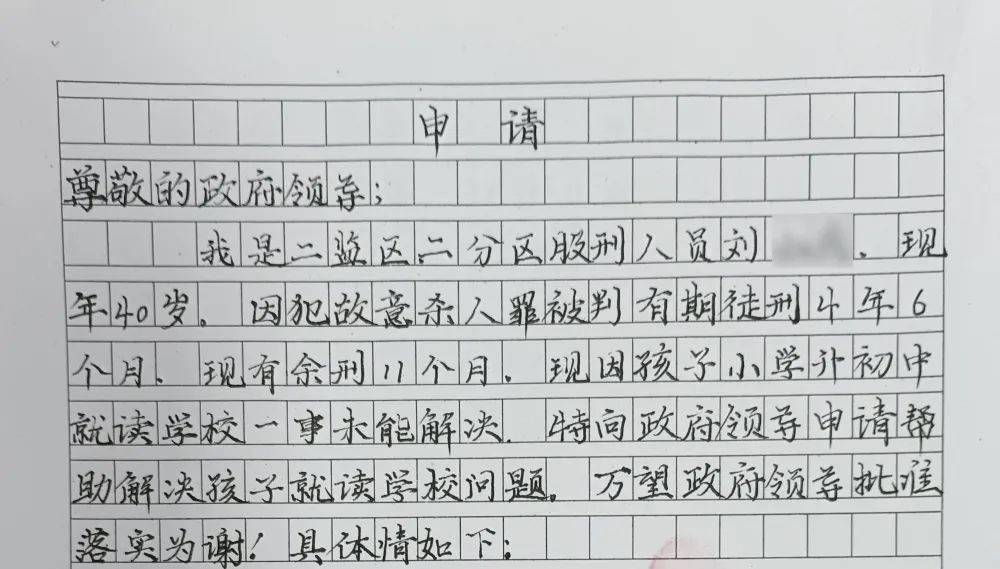 申请
尊敬的政府领导:
我是二监区二分区服刑人员刘 、现
年40岁。因犯故意杀人罪被判有期徒刑4年6
个月、现有余刑11个月。现因孩子小学升初中
就读学校一事未能解决.特向政府领导申请帮
助解决孩子就读学校问题。万望政府领导批准
落实为谢!具体情如下: